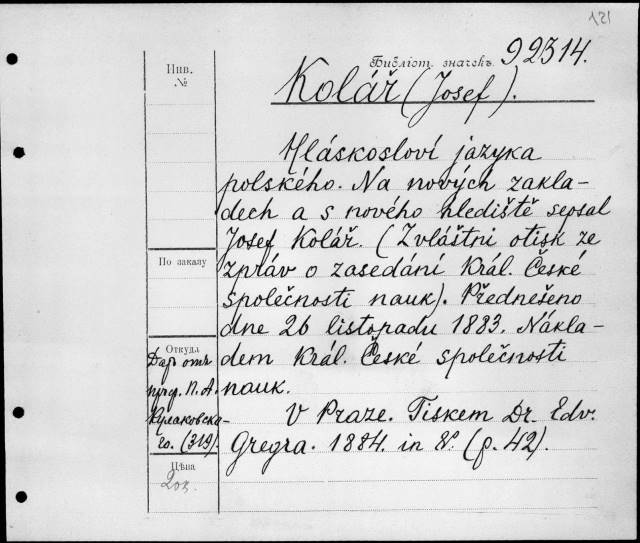 121
Библіот. значекъ 92314.
Инв.
№
Kolář (Josef).
Hláskosloví jazyka
polského. Na nových zakla-
dech a s nového hlediště sepsal
Josef Kolář. (Zvláštni otisk ze
zpráv o zasedání Král. České
společnosti nauk). Předneseno
dne 26 listopadu 1883. Nákla-
dem Král. České společnosti
nauk.
V Praze. Tiskem Dr. Edv.
Gregra. 1884. in 8º. (p. 42).
По заказу
Откуда
Даръ отъ
проф. П. А.
Кулаковска-
го. (319).
Цѣна